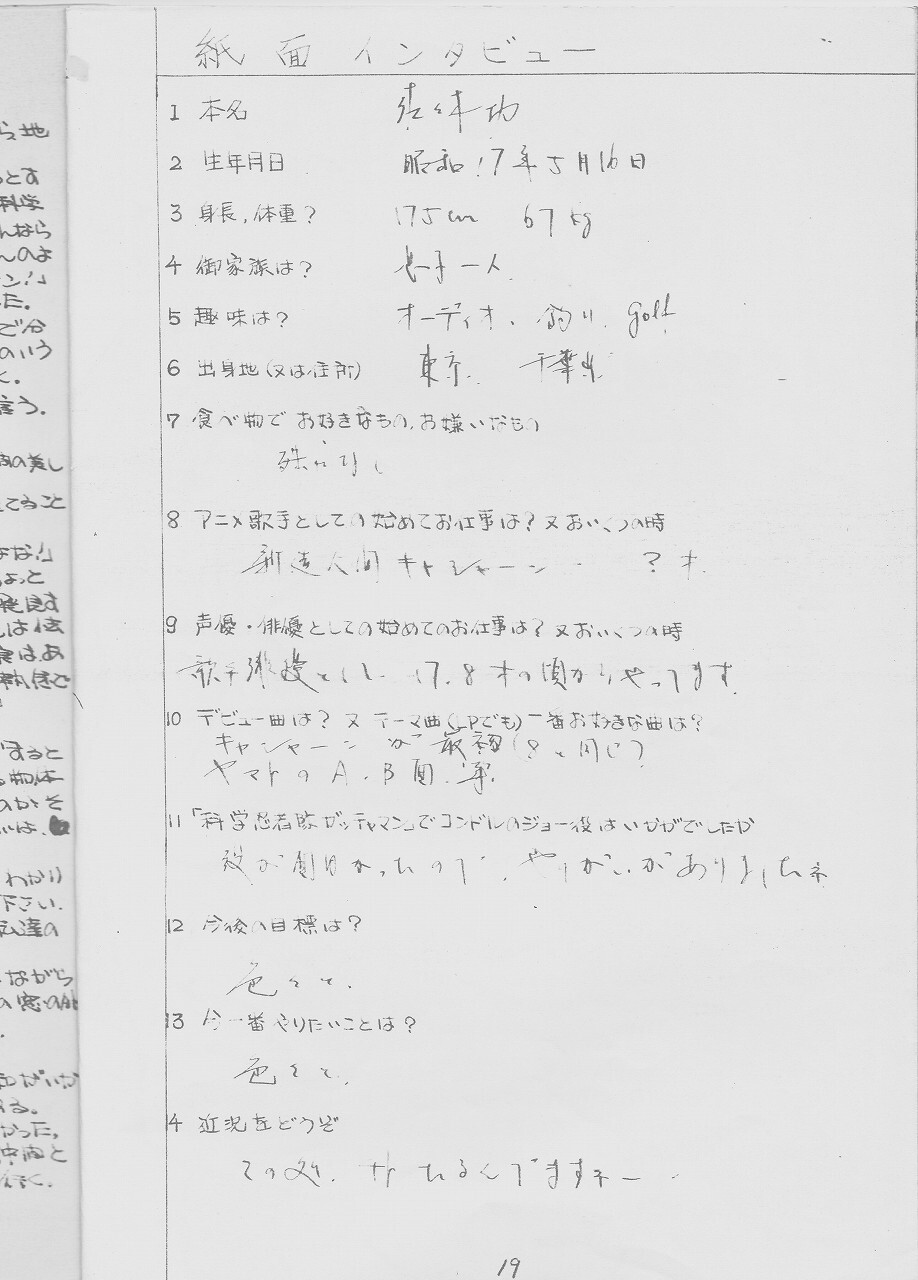 ら地
とす
科学
んなら
んのよ
ン!」
た。
で分
のいう
く。
言う。
肉の美し
てること
よな!」
ょっと
は、あ
すると
物体
のかそ
わかり
下さい.
私達の
ながら
の窓の
る。
かった,
紙面インタビュー
1 本名 佐々木功
2 生年月日 昭和17年5月16日
3 身長,体重? 175cm 67kg
4 御家族は? 息子一人
5 趣味は? オーディオ、釣り、golf
6 出身地(又は住所) 東京 千葉県
7 食べ物でお好きなもの,お嫌いなもの
殊になし
8 アニメ歌手としての始めてお仕事は?又おいくつの時
新造人間キャシャーン ?才
9 声優・俳優としての始めてのお仕事は?又おいくつの時
歌手 17.8才の頃からやってます
10 デビュー曲は?又テーマ曲(LPでも)一番お好きな曲は?
キャシャーンが最初(8と同じ)
ヤマトのA.B面
11 「科学忍者隊ガッチャマン」でコンドルのジョー役はいかがでしたか
役が面白かったので、やりがいがありましたネ
12 今後の目標は?
色々と、
13 今一番やりたいことは?
色々と、
14 近況をどうぞ
19